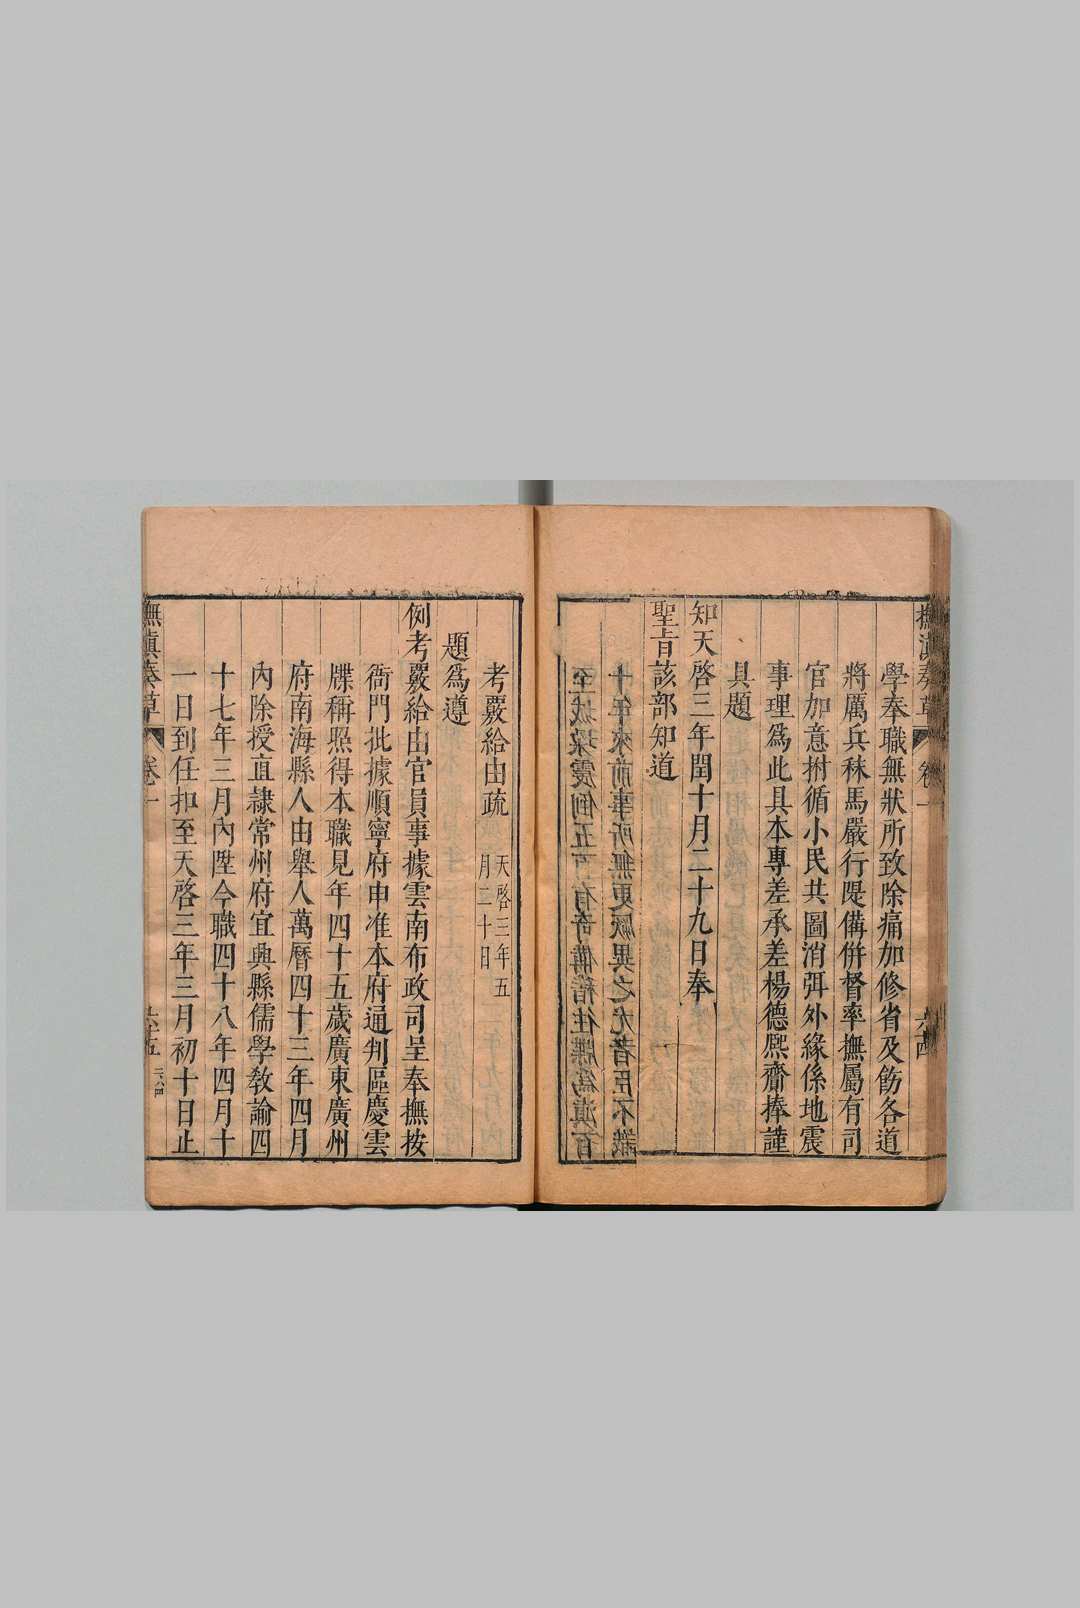 撫滇奏草 卷一 六四
學奉職無狀所致除痛加修省及飭各道
將厲兵秣馬嚴行隄備併督率撫屬有司
官加意拊循小民共圖消弭外緣係地震
事理爲此具本專差承差楊德熈齎捧謹
具題
知天啓三年閏十月二十九日奉
聖旨該部知道
十年來前事所無更厥異之尤者臣不識
至城垜震倒五百有奇備稽往牒爲滇百
考覈給由疏 天啓三年五
月二十日
題爲遵
例考覈給由官員事據雲南布政司呈奉撫按
衙門批據順寧府申准本府通判區慶雲
牒稱照得本職見年四十五歲廣東廣州
府南海縣人由舉人萬曆四十三年四月
內除授直隷常州府宜興縣儒學敎諭四
十七年三月內陞今職四十八年四月十
一日到任扣至天啓三年三月初十日止
撫滇奏草 卷一 六五 三八四